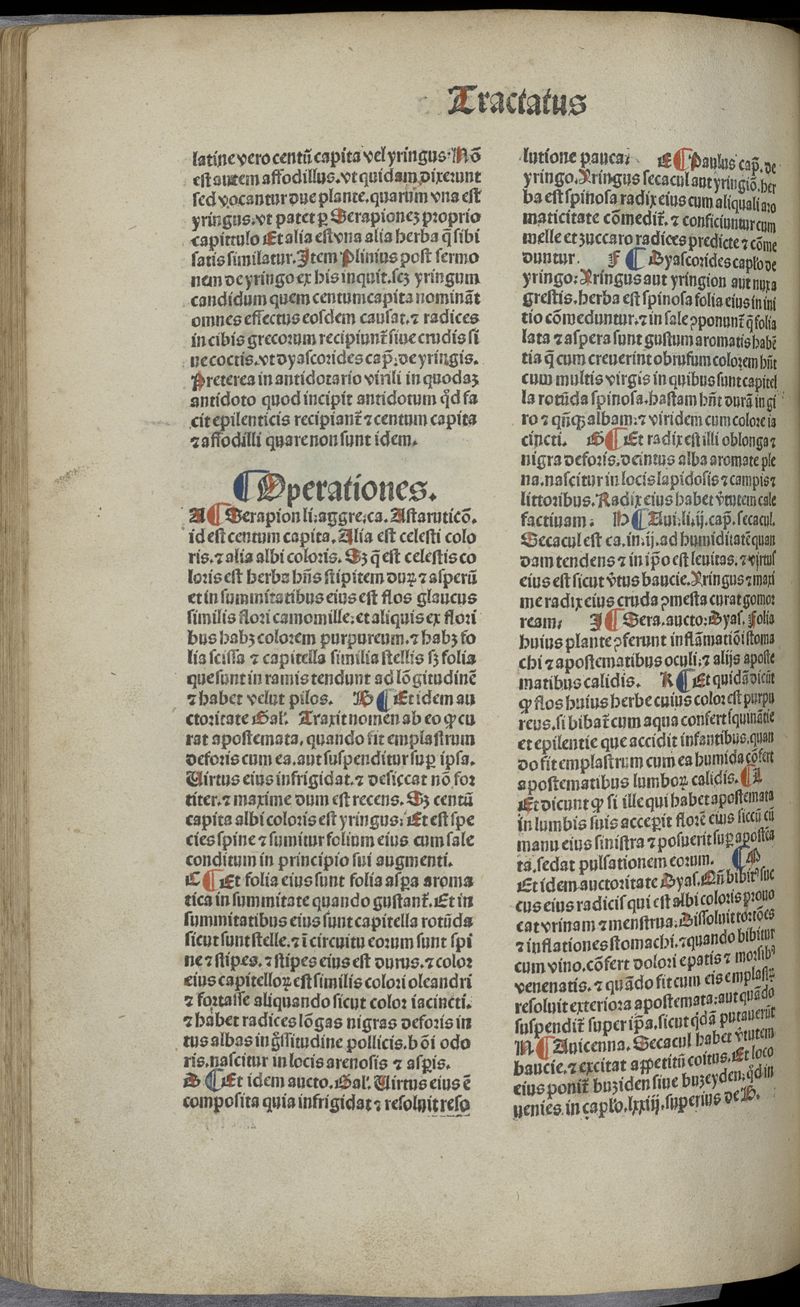 Tractatus
latine vero centũ capita vel yringus. Nõ
est autem affodillus. vt quidam dixerunt
sed vocantur due plante. quarum vna est
yringus. vt patet ꝑ Serapionez proprio
capittulo Et alia est vna alia herba q̃ sibi
satis similatur. Item Plinius post sermo
nem de yringo ex his inquit. scz yringum
candidum quem centumcapita nominãt
omnes effectus eosdem causat. ⁊ radices
in cibis grecorum recipiunt᷑ siue crudis si
ue coctis. vt dyascorides cap̃. de yringis.
Preterea in antidotario vnili in quodaz
antidoto quod incipit antidotum qd̃ fa
cit epilenticis recipiant᷑ ⁊ centum capita
⁊ affodilli quare non sunt idem.
¶ Operationes.
A ¶ Serapion li. aggre. ca. Astaruticõ.
id est centum capita. Alia est celesti colo
ris. ⁊ alia albi coloris. Sz q̃ est celestis co
loris est herba hñs stipitem duꝝ ⁊ asperũ
et in summitatibus eius est flos glaucus
similis flori camomille. et aliquis ex flori
bus habz colorem purpureum. ⁊ habz fo
lia scissa ⁊ capitella similia stellis sz folia
que sunt in ramis tendunt ad lõgitudinẽ
⁊ habet velut pilos. B ¶ Et idem au
ctoritate Gal̃. Traxit nomen ab eo ꝙ cu
rat apostemata, quando fit emplastrum
deforis cum ea. aut suspenditur suꝑ ipsa.
Uirtus eius infrigidat. ⁊ desiccat nõ for
titer. ⁊ maxime dum est recens. Sz centũ
capita albi coloris est yringus. Et est spe
cies spine ⁊ sumitur folium eius cum sale
conditum in principio sui augmenti.
C ¶ Et folia eius sunt folia asꝑa aroma
tica in summitate quando gustant᷑. Et in
summitatibus eius sunt capitella rotũda
sicut sunt stelle. ⁊ ĩ circuitu eorum sunt spi
ne ⁊ stipes. ⁊ stipes eius est durus. ⁊ color
eius capitelloꝝ est similis colori oleandri
⁊ fortasse aliquando sicut color iacincti.
⁊ habet radices lõgas nigras deforis in
tus albas in g̃ssitudine pollicis. bõi odo
ris. nascitur in locis arenosis ⁊ asꝑis.
D ¶ Et idem aucto. Gal̃. Uirtus eius ẽ
composita quia infrigidat ⁊ resoluit reso
lutione pauca. E ¶ Paulus cap̃. de
yringo. Yringus secacul aut yringiõ. her
ba est spinosa radix eius cum aliquali aro
maticitate cõmedit᷑. ⁊ conficiuntur cum
melle et zuccaro radices predicte ⁊ cõme
duntur. F ¶ Dyascorides capl̃o de
yringo. Yringus aut yringion aut nura
grestis. herba est spinosa folia eius in ini
tio cõmeduntur. ⁊ in sale ꝓponunt᷑ q̃ folia
lata ⁊ aspera sunt gustum aromatis habẽ
tia q̃ cum creuerint obrufum colorem hñt
cum multis virgis in quibus sunt capitel
la rotũda spinosa. hastam hñt durã in gi
ro ⁊ qñꝙ albam. ⁊ viridem cum colore ia
cincti. G ¶ Et radix est illi oblonga ⁊
nigra deforis. deintus alba aromate ple
na. nascitur in locis lapidosis ⁊ campis ⁊
littoribus. Radix eius habet v̾tutem cale
factiuam. H ¶ Aui. li. ij. cap̃. secacul.
Secacul est ca. in. ij. ad humiditatẽ quan
dam tendens ⁊ in ip̃o est leuitas. ⁊ virtus
eius est sicut v̾tus baucie. Yringus ⁊ maxi
me radix eius cruda ꝯmesta curat gomor
ream. I ¶ Sera. aucto. Dyas. Folia
huius plante ꝯferunt inflãmatiõi stoma
chi ⁊ apostematibus oculi. ⁊ alijs aposte
matibus calidis. K ¶ Et quidã dicũt
ꝙ flos huius herbe cuius color est purpu
reus. si bibat᷑ cum aqua confert squinãtie
et epilentie que accidit infantibus. quan
do fit emplastrum cum ea humida cõfert
apostematibus lumboꝝ calidis. ¶ L
Et dicunt ꝙ si ille qui habet apostemata
in lumbis suis accepit florẽ eius siccũ cũ
manu eius sinistra ⁊ posuerit suꝑ aposte͂a
ta. sedat pulsationem eorum. ¶ M
Et idem auctoritate Dyas. Cũ bibit᷑ suc
cus eius radicis qui est albi coloris prouo
cat vrinam ⁊ menstrua. Dissoluit tortões
⁊ inflationes stomachi. ⁊ quando bibitur
cum vino. cõfert dolori epatis ⁊ morsib᷒
venenatis. ⁊ quãdo fit cum eis emplastr̃
resoluit exteriora apostemata. aut quãdo
suspendit᷑ super ip̃a. sicut qdã putauerũt
N ¶ Auicenna. Secacul habet v̾tutem
baucie. ⁊ excitat appetitũ coitus. Et loco
eius ponit᷑ buziden siue buzeyden. qd̃ in
uenies. in capl̃o. lxxiij. superius de B.